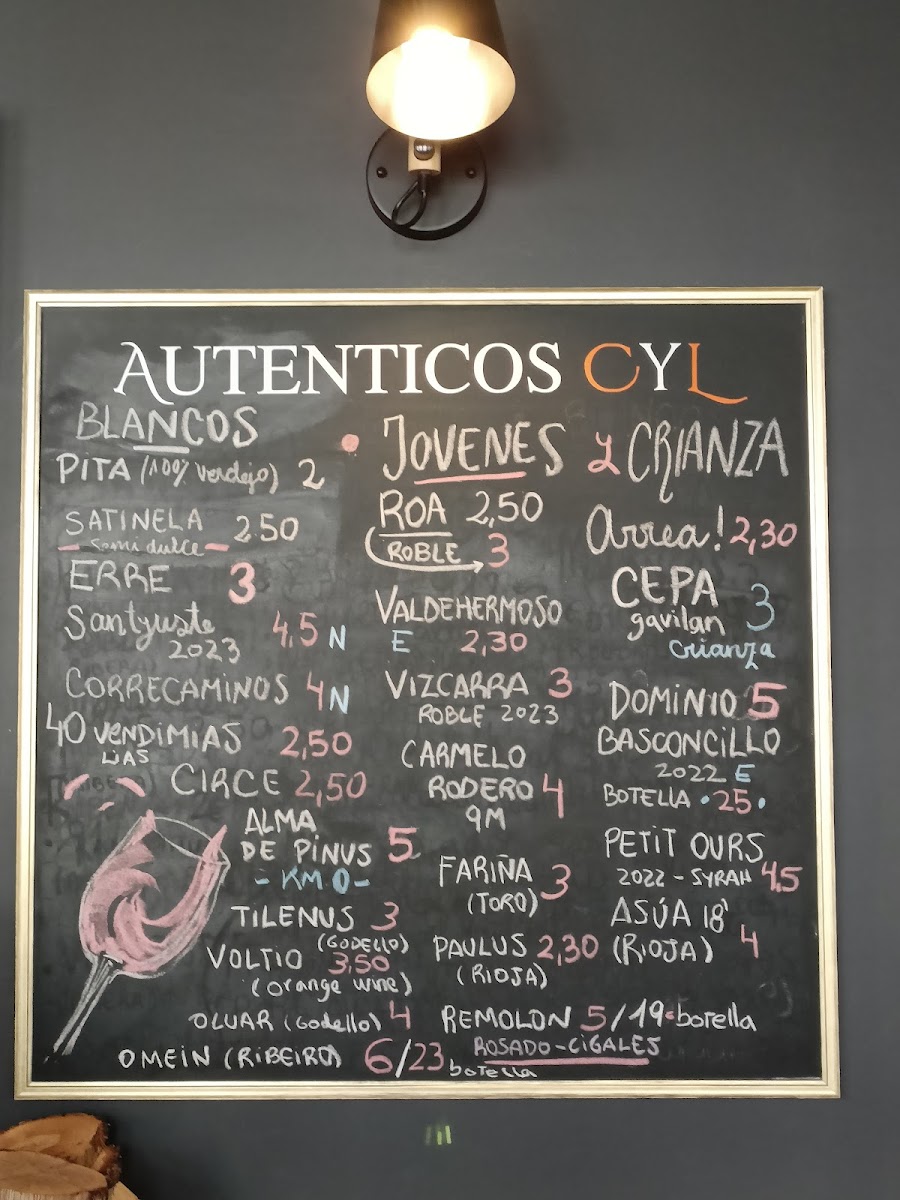 AUTENTICOS CYL
BLANCOS
PITA (100% verdejo) 2
SATINELA 2,50
Semi dulce
ERRE 3
Santyuste 4,5 N
2023
CORRECAMINOS 4 N
40 VENDIMIAS 2,50
LIAS
CIRCE 2,50
ALMA
DE PINUS 5
- KM 0 -
TILENUS 3
(GODELLO)
VOLTIO 3,50
(Orange wine)
OLUAR (Godello) 4
OMEIN (RIBEIRO) 6/23
botella
JOVENES y CRIANZA
ROA 2,50
ROBLE 3
VALDEHERMOSO
E 2,30
VIZCARRA 3
ROBLE 2023
CARMELO
RODERO 4
9M
FARIÑA 3
(TORO)
PAULUS 2,30
(RIOJA)
Arrea! 2,30
CEPA 3
gavilan
crianza
DOMINIO 5
BASCONCILLO
2022 E
BOTELLA •25•
PETIT OURS
2022 - SYRAH 4,5
ASÚA 18'
(RIOJA) 4
REMOLON 5/19€ botella
ROSADO-CIGALES